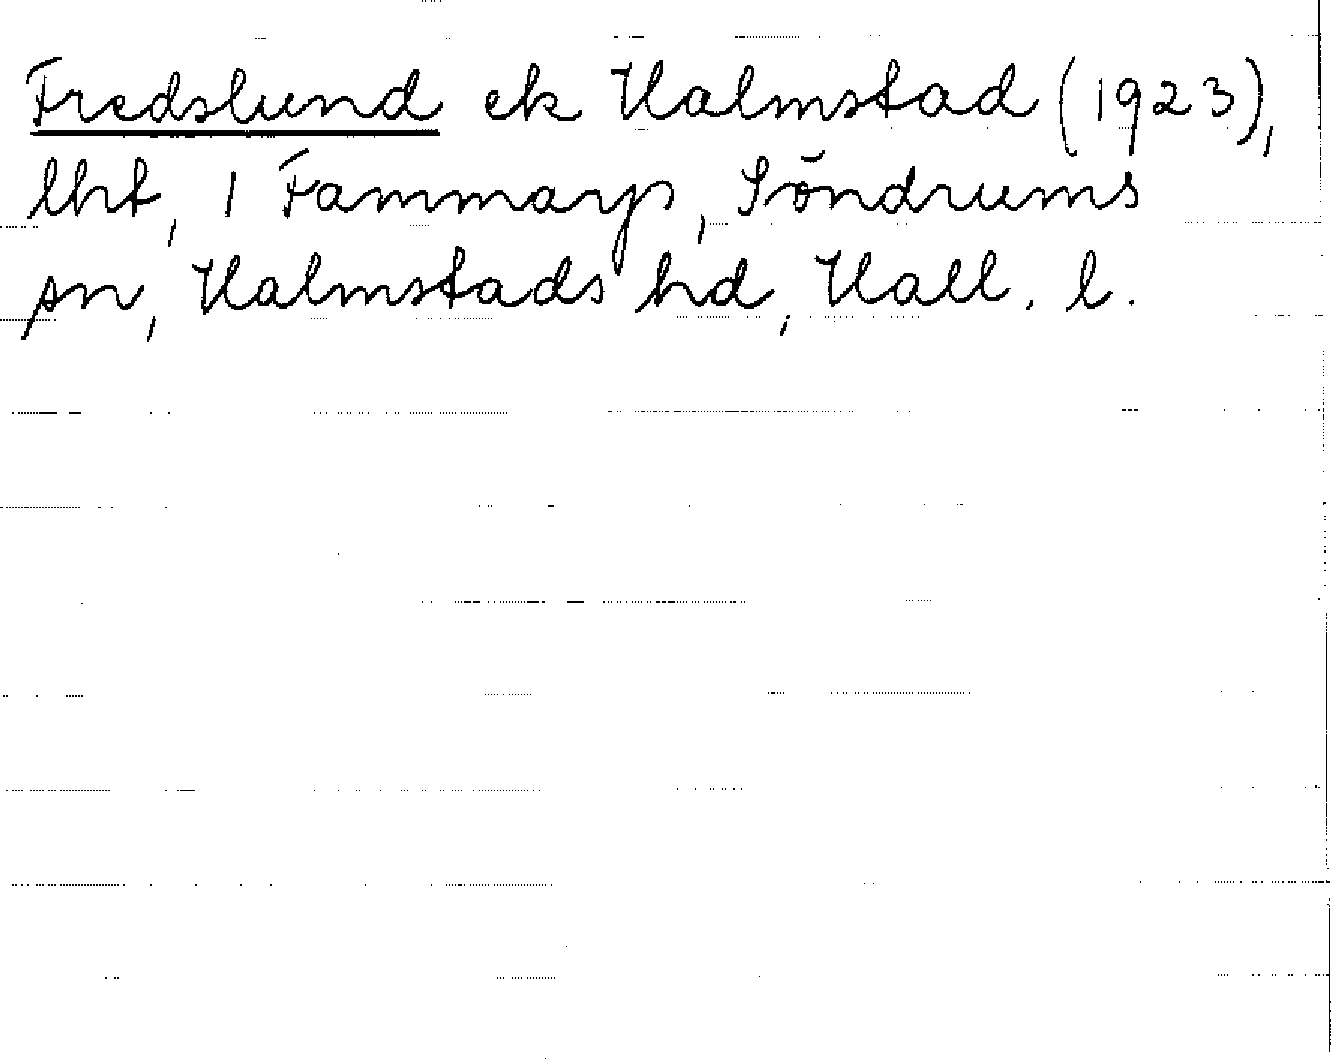 Fredslund ek Halmstad (1923),
lht, 1 Fammarp, Söndrums
sn, Halmstads hd, Hall. l.